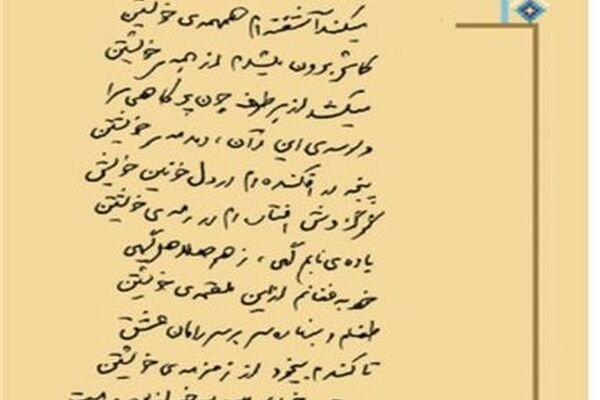 میکند آشفته‌ام همهمه‌ی خویشتن
کاش برون میشدم از همه‌ی خویشتن
میکشد از هر طرف چون پر کاهی مرا
وسوسه‌ی این و آن، دمدمه‌ی خویشتن
پنجه در افکنده‌ام در دل خونین خویش
گرگ وش افتاده‌ام در رمه‌ی خویشتن
باده‌ی نابم گهی، زهر هلاهل گهی
خود به فغانم ازین علقمه‌ی خویشتن
طفلم و بنهاده سر بر سر دامان عشق
تا کندم بیخود از زمزمه‌ی خویشتن